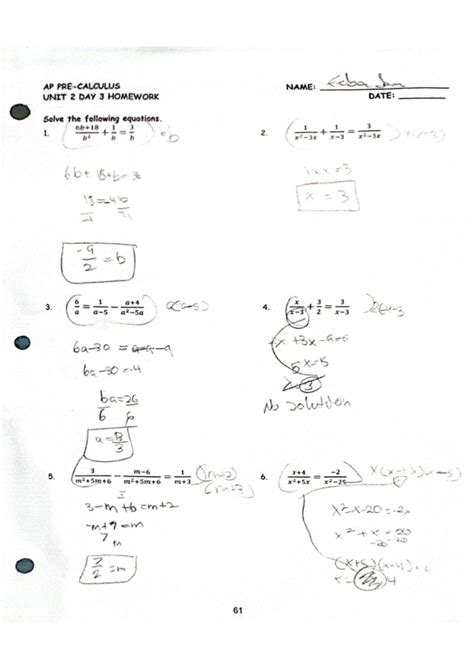 AP PRE-CALCULUS
NAME:
UNIT 2 DAY 3 HOMEWORK
DATE:
Solve the following equations.
1. (6b+18)/b² + 1/b = 3/b
6b + 18 + b = 3b
-9/2 = b
2. 1/(x²-3x) + 1/(x-3) = 3/(x²-3x)
1+x=3
x = 3
3. 6/a = 1/(a-5) - (a+4)/(a²-5a) a(a-5)
6a-30 = a-a-4
6a-30 = -4
6a=26
a = 13/3
4. x/(x-3) + 3/2 = 3/(x-3)
x + 3x-9=6
5x=15
3
No solution
5. 3/(m²+5m+6) - (m-6)/(m²+5m+6) = 1/(m+3) (m+2)
(m+3)
3-m+6 = m+2
-m+9 = m
7/2 = m
6. (x+4)/(x²+5x) = -2/(x²-25)
x²-x-20 = -2x
x² + x = 20
-20 -20
(x+5)(x-4)
x= 4
61